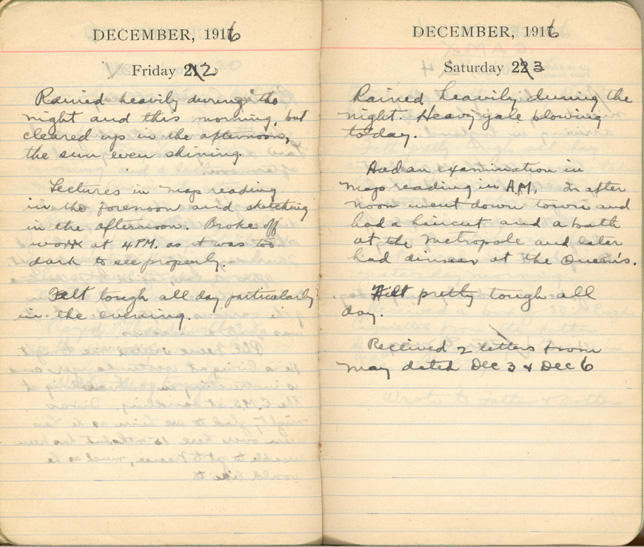 DECEMBER, 1916
Friday 22
Rained heavily during the
night and this morning, but
cleared up in the afternoon,
the sun even shining.
Lectures in map reading
in the forenoon and sketching
in the afternoon. Broke off
work at 4 P.M. as it was too
dark to see properly.
Felt tough all day particularly
in the evening.
DECEMBER, 1916
Saturday 23
Rained heavily during the
night. Heavy gale blowing
today.
Had an examination in
map reading in A.M. In after
noon went down town and
had a haircut and a bath
at the Metropole and later
had dinner at the Queen's.
Felt pretty tough all
day.
Received 2 letters from
May dated Dec 3 & Dec 6